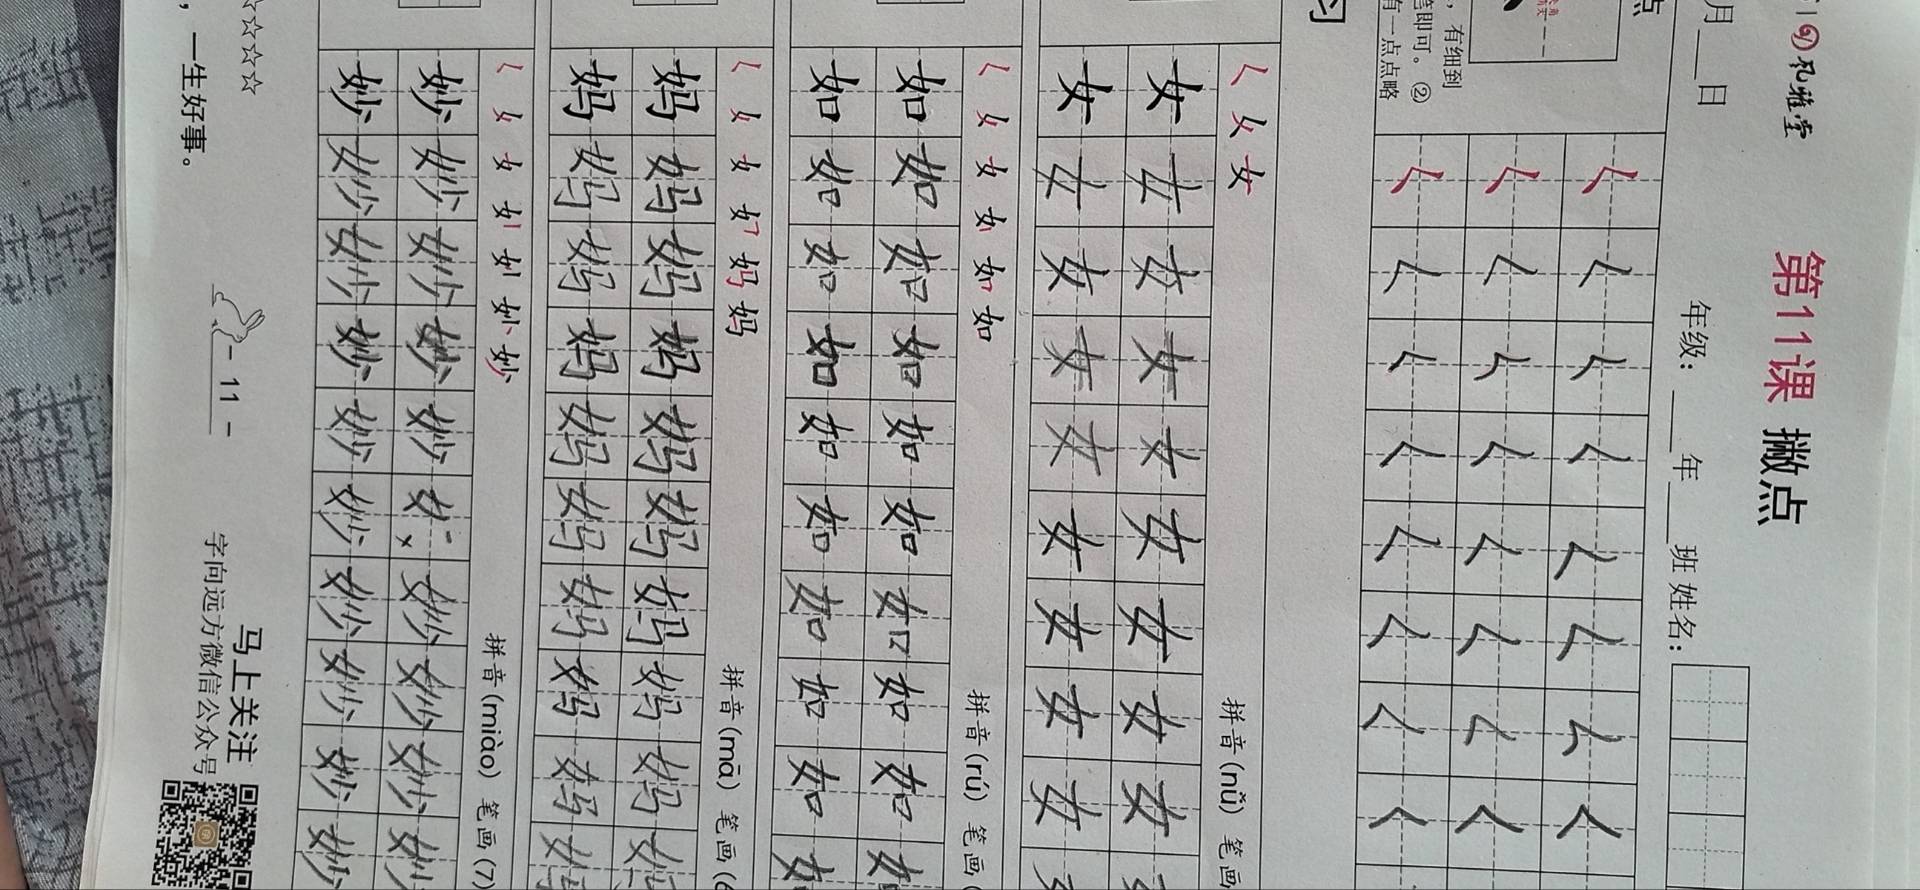 孔雅堂
第11课 撇点
月 日 年级: 年 班 姓名:
点
，有细到
笔即可。②
有一点点略
𡿨 𡿨 𡿨 𡿨 𡿨 𡿨 𡿨 𡿨
𡿨 𡿨 𡿨 𡿨 𡿨 𡿨 𡿨 𡿨
𡿨 𡿨 𡿨 𡿨 𡿨 𡿨 𡿨 𡿨
习
𡿨 女 女 拼音(nǚ) 笔画
女 女 女 女 女 女 女 女 女
女 女 女 女 女 女 女 女 女
𡿨 女 女 如 如 如 拼音(rú) 笔画(
如 如 如 如 如 如 如 如 如 如
如 如 如 如 如 如 如 如 如 如
𡿨 女 女 妈 妈 妈 拼音(mā) 笔画(6
妈 妈 妈 妈 妈 妈 妈 妈 妈 妈
妈 妈 妈 妈 妈 妈 妈 妈 妈 妈
𡿨 女 女 妙 妙 拼音(miào) 笔画(7)
妙 妙 妙 妙 妙 妙 妙 妙 妙
妙 妙 妙 妙 妙 妙 妙 妙 妙 妙
☆☆☆☆
马上关注
，一生好事。 - 11 - 字向远方微信公众号